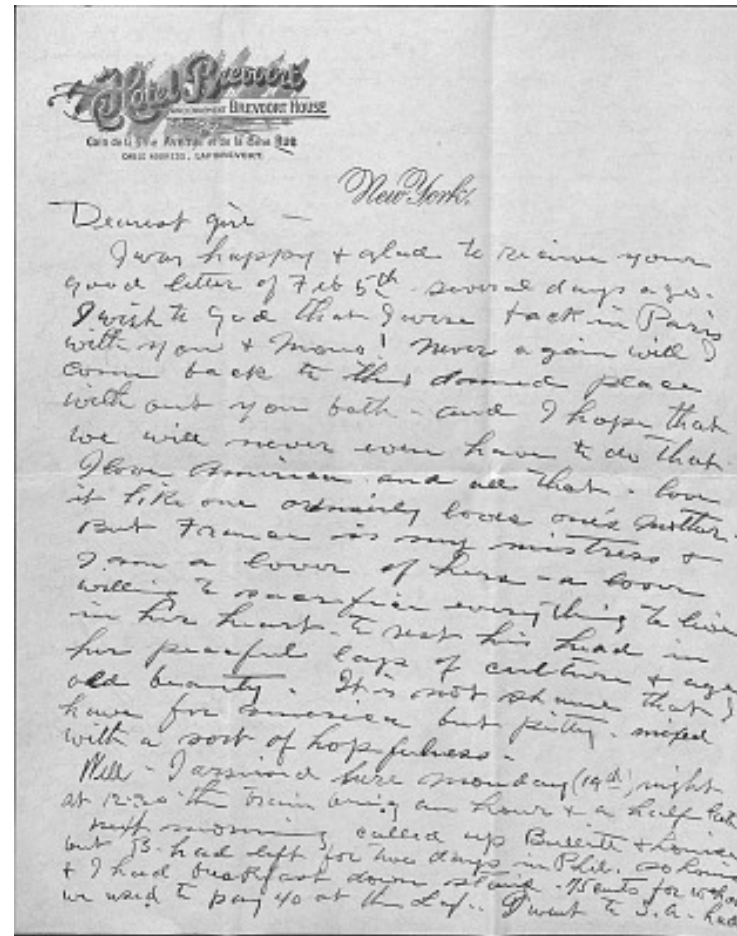 Hotel Brevoort
BREVOORT HOUSE
Coin de la 5me Avenue et de la 8me Rue
CABLE ADDRESS, LAFBREVORT.
New York.
Dearest girl —
I was happy + glad to receive your
good letter of Feb 5th several days ago.
I wish to God that I were back in Paris
with you + Mono! Never again will I
come back to this damned place
with out you both - and I hope that
we will never even have to do that.
I love America and all that - love
it like one ordinarily loves one's mother.
But France is my mistress +
I am a lover of hers - a lover
willing to sacrifice everything to live
in her heart - to rest his head in
her peaceful laps of culture + aged
old beauty. It is not shame that I
have for America but pitty - mixed
with a sort of hopefulness.
Well - I arrived here Monday (19th) night
at 12:20 the train being an hour + a half late
next morning called up Bullitt + Louise
but B. had left for two days in Phil. so Louise
+ I had breakfast down stairs - 75 cents for
we used to pay 40 at the Laf.. I went to S.A. had